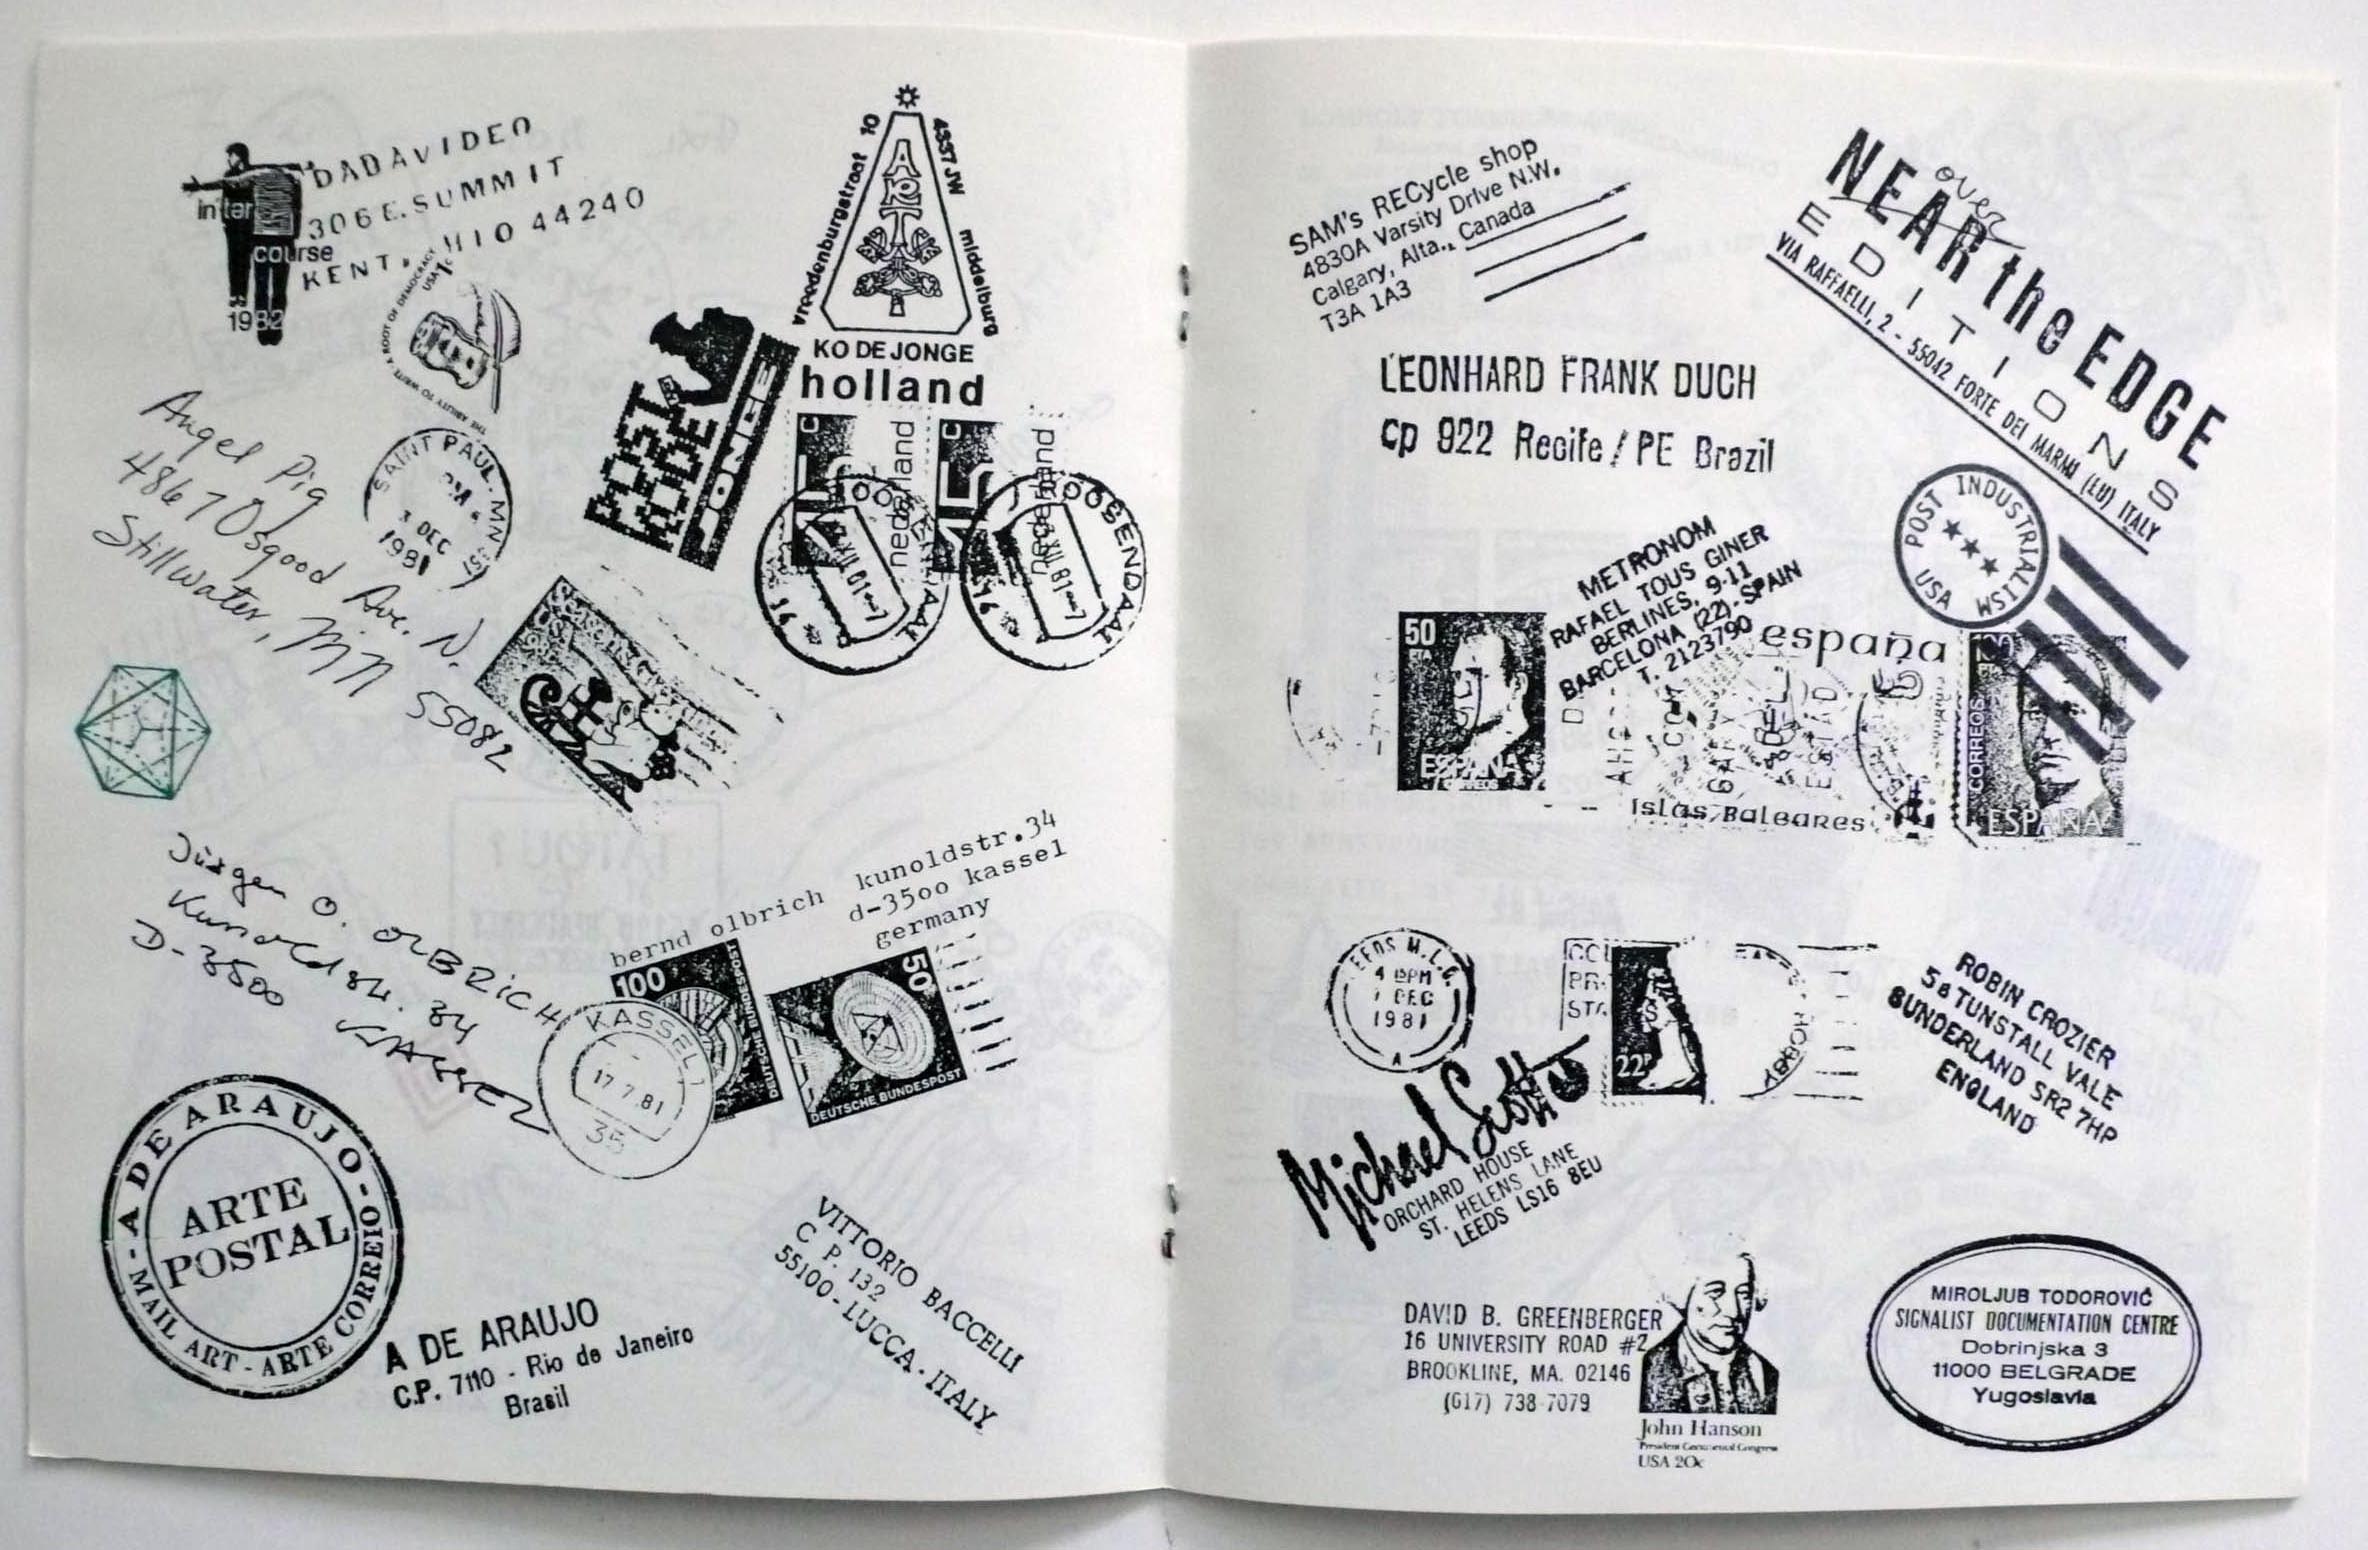 DADAVIDEO
306 E. SUMMIT
KENT, OHIO 44240
inter
course
1982
THE ABILITY TO WRITE. A ROOT OF DEMOCRACY
USA 1c
Angel Pig
4867 Osgood Ave. N.
Stillwater, MN 55082
SAINT PAUL. MN 551
PM
3 DEC
1981
vreedenburgstraat 10
4337 JW middelburg
KO DE JONGE
holland
POST
KODE
JONGE
nederland
nederland
OOSENDAAL
OOSENDAAL
Season's Greetings
Jürgen O. OLBRICH
Kunoldstr. 34
D-3500 KASSEL
bernd olbrich kunoldstr.34
d-3500 kassel
germany
100
DEUTSCHE BUNDESPOST
50
DEUTSCHE BUNDESPOST
KASSEL 1
17.7.81
35
A DE ARAUJO - MAIL ART - ARTE CORREIO -
ARTE
POSTAL
A DE ARAUJO
C.P. 7110 - Rio de Janeiro
Brasil
VITTORIO BACCELLI
C P. 132
55100 - LUCCA - ITALY
SAM's RECycle shop
4830A Varsity Drive N.W.
Calgary, Alta., Canada
T3A 1A3
over
NEAR the EDGE
EDITIONS
VIA RAFFAELLI, 2 - 55042 FORTE DEI MARMI (LU) ITALY
LEONHARD FRANK DUCH
cp 922 Recife / PE Brazil
POST INDUSTRIALISM
USA
METRONOM
RAFAEL TOUS GINER
BERLINES, 9-11
BARCELONA (22). SPAIN
T. 2123790
50
PTA
ESPAÑA
CORREOS
españa
Islas Baleares
100
CORREOS
ESPAÑA
LEEDS M.L.O.
4 15PM
7 DEC
1981
A
22P
Michael Scott
ORCHARD HOUSE
ST. HELENS LANE
LEEDS LS16 8EU
ROBIN CROZIER
5a TUNSTALL VALE
SUNDERLAND SR2 7HP
ENGLAND
DAVID B. GREENBERGER
16 UNIVERSITY ROAD #2
BROOKLINE, MA. 02146
(617) 738-7079
John Hanson
President Continental Congress
USA 20c
MIROLJUB TODOROVIĆ
SIGNALIST DOCUMENTATION CENTRE
Dobrinjska 3
11000 BELGRADE
Yugoslavia